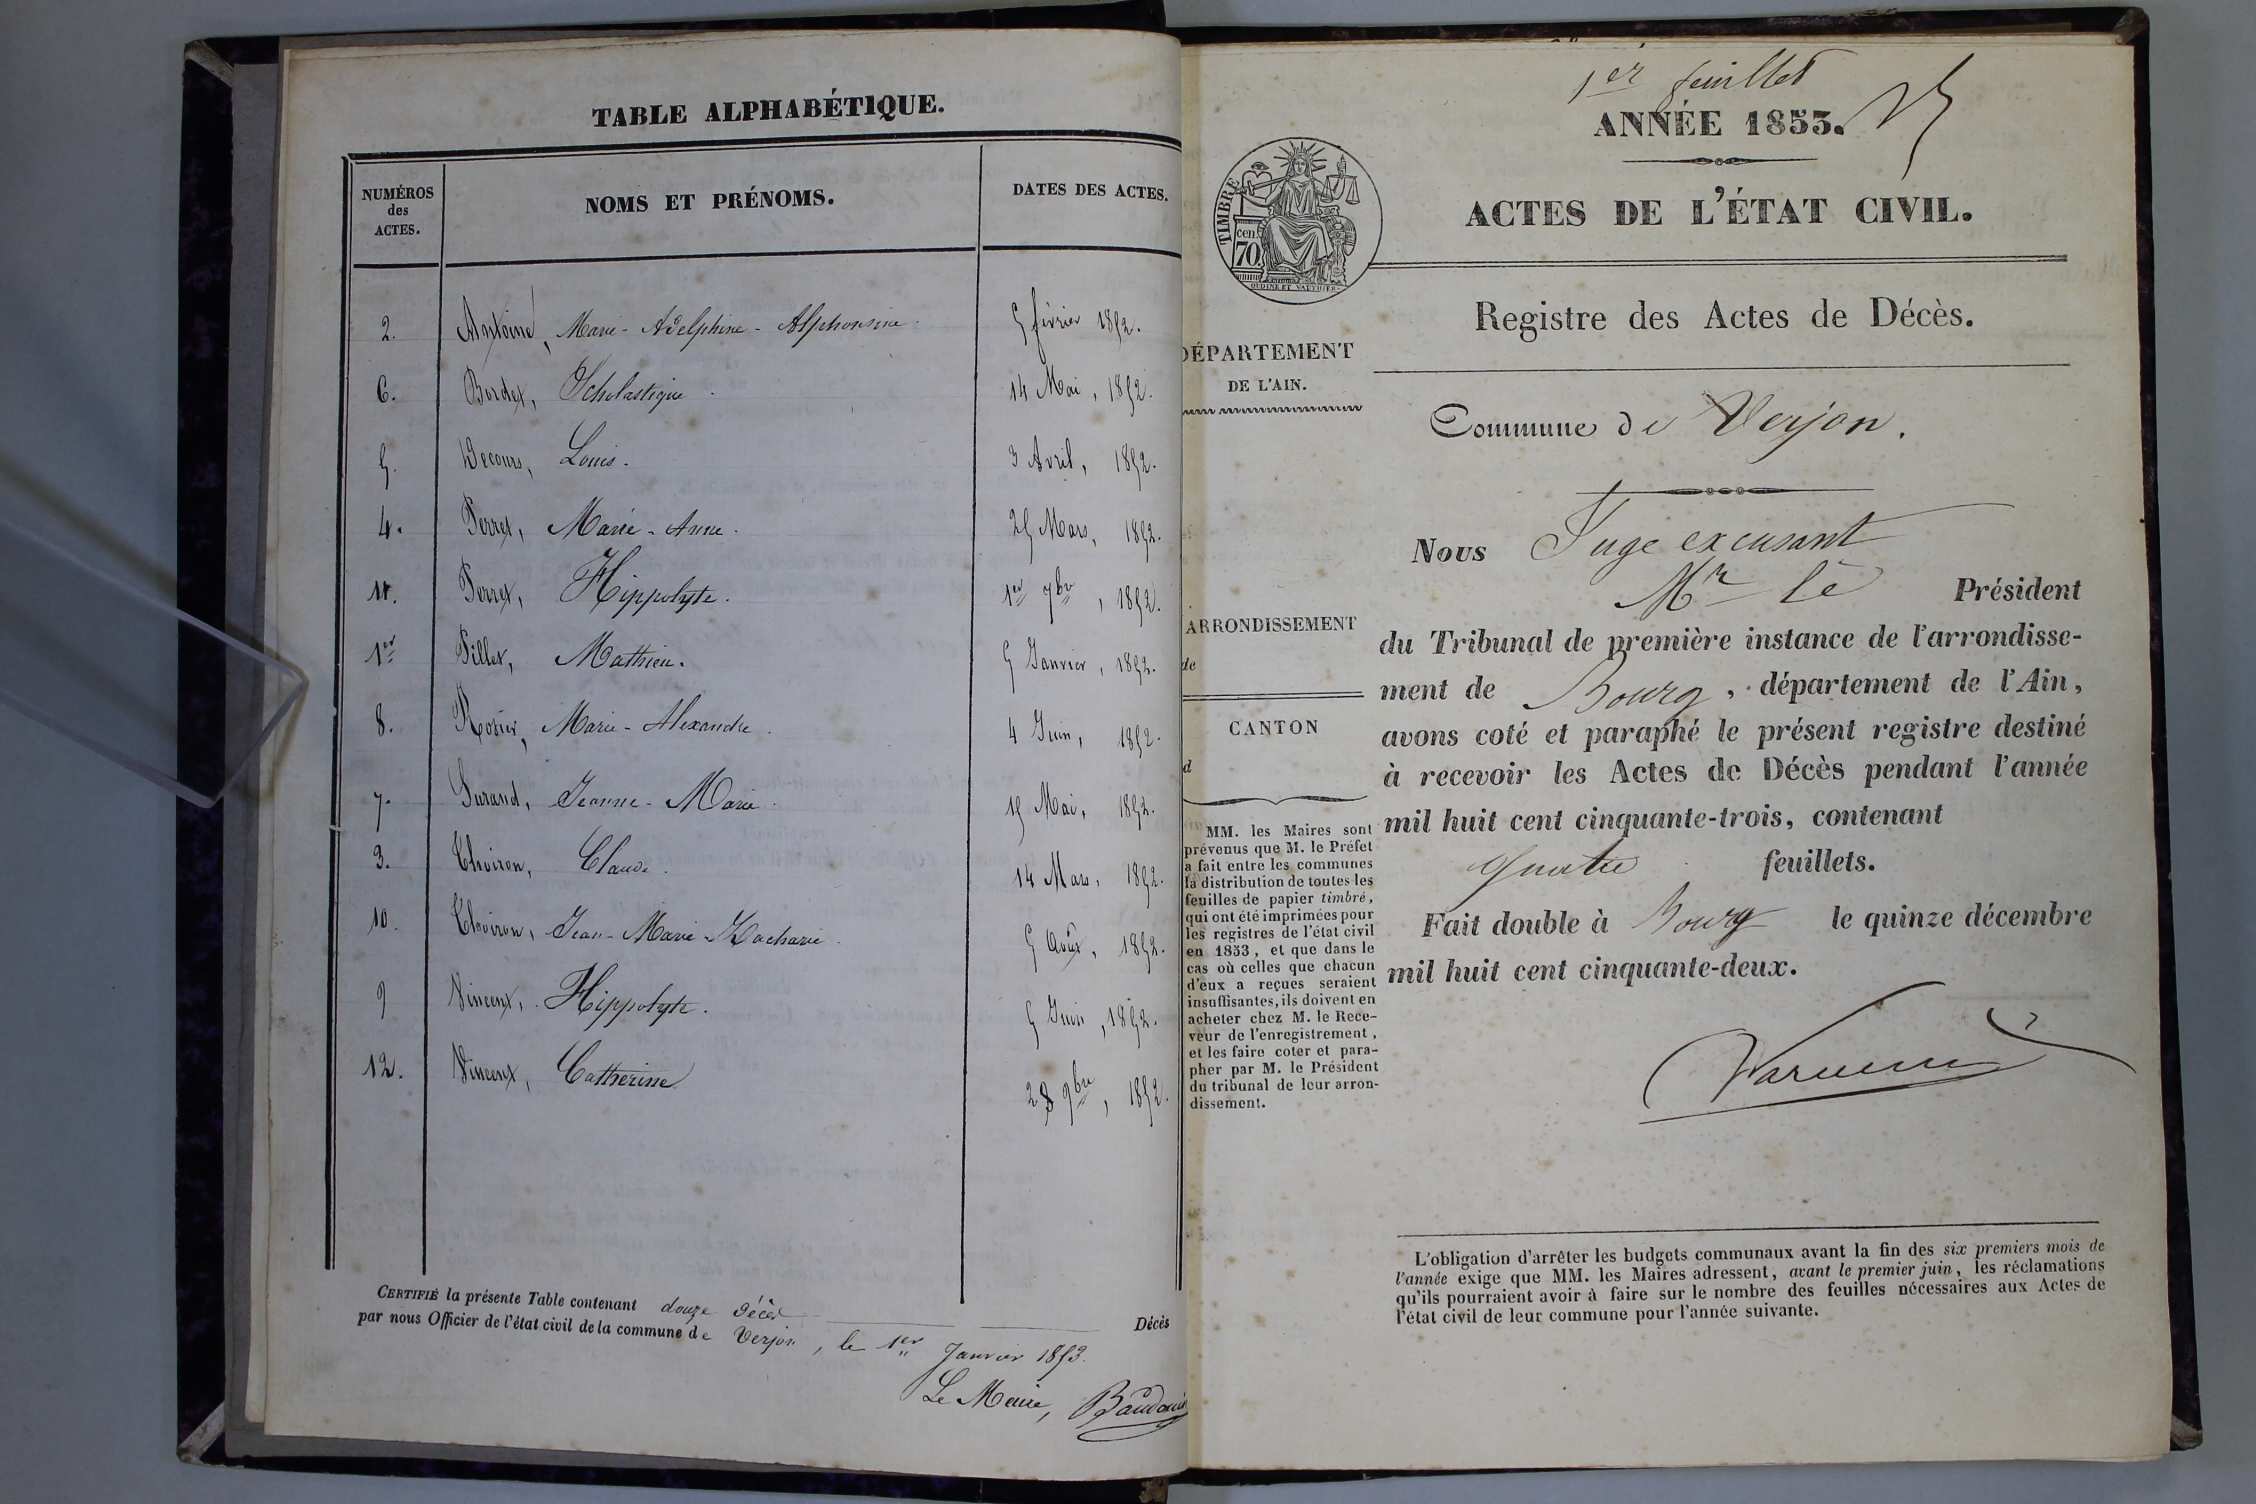 TABLE ALPHABÉTIQUE.
NUMÉROS
des
ACTES.
NOMS ET PRÉNOMS.
DATES DES ACTES.
2. Antoine, Marie - Adelphine - Alphonsine 5 février 1852.
6. Bordet, Scholastique 14 Mai, 1852.
5. Decours, Louis. 3 Avril, 1852.
4. Perret, Marie - Anne. 25 Mars, 1852.
11. Perret, Hippolyte. 1er 7bre, 1852.
1er Pillet, Mathieu. 5 Janvier, 1852.
8. Rozier, Marie - Alexandre. 4 Juin, 1852.
7. Surand, Jeanne - Marie. 15 Mai, 1852.
3. Thoiron, Claude. 14 Mars, 1852.
10. Thoiron, Jean - Marie - Zacharie. 5 Août, 1852.
9 Vincent, Hippolyte. 5 Juin, 1852.
12. Vincent, Catherine 28 9bre, 1852.
CERTIFIÉ la présente Table contenant douze Décès Décès
par nous Officier de l'état civil de la commune de Verjon, le 1er Janvier 1853.
Le Maire, Baudouin
1er feuillet
ANNÉE 1853.
ACTES DE L'ÉTAT CIVIL.
TIMBRE
cen.
70
OUDINÉ ET VAUTHIER
Registre des Actes de Décès.
DÉPARTEMENT
DE L'AIN.
Commune de Verjon.
Nous Juge excusant
Mr le Président
ARRONDISSEMENT
de
du Tribunal de première instance de l'arrondisse-
ment de Bourg, département de l'Ain,
avons coté et paraphé le présent registre destiné
à recevoir les Actes de Décès pendant l'année
mil huit cent cinquante-trois, contenant
quatre feuillets.
Fait double à Bourg le quinze décembre
mil huit cent cinquante-deux.
CANTON
d
MM. les Maires sont
prévenus que M. le Préfet
a fait entre les communes
la distribution de toutes les
feuilles de papier timbré,
qui ont été imprimées pour
les registres de l'état civil
en 1853, et que dans le
cas où celles que chacun
d'eux a reçues seraient
insuffisantes, ils doivent en
acheter chez M. le Rece-
veur de l'enregistrement,
et les faire coter et para-
pher par M. le Président
du tribunal de leur arron-
dissement.
L'obligation d'arrêter les budgets communaux avant la fin des six premiers mois de
l'année exige que MM. les Maires adressent, avant le premier juin, les réclamations
qu'ils pourraient avoir à faire sur le nombre des feuilles nécessaires aux Actes de
l'état civil de leur commune pour l'année suivante.